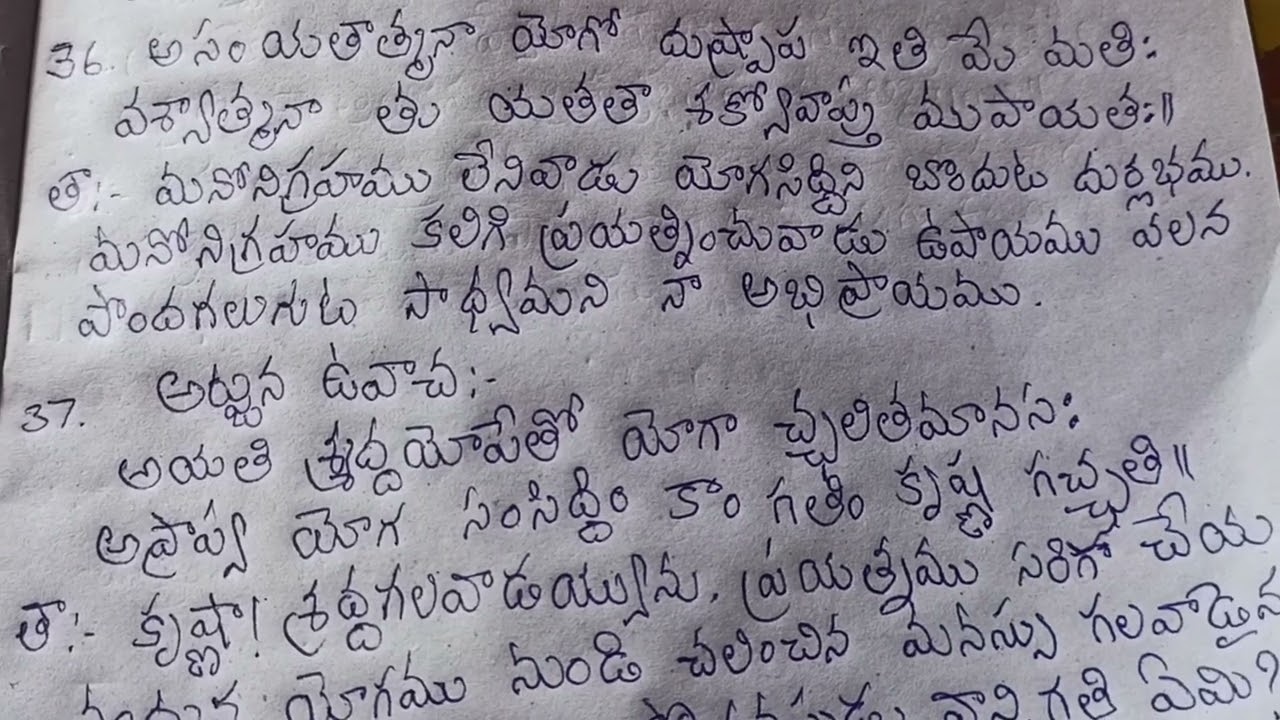 36. అసంయతాత్మనా యోగో దుష్ప్రాప ఇతి మే మతిః
వశ్యాత్మనా తు యతతా శక్యోవాప్తు ముపాయతః॥
తా:- మనోనిగ్రహము లేనివాడు యోగసిద్ధిని బొందుట దుర్లభము.
మనోనిగ్రహము కలిగి ప్రయత్నించువాడు ఉపాయము వలన
పొందగలుగుట సాధ్యమని నా అభిప్రాయము.
అర్జున ఉవాచ:-
37. అయతి శ్రద్ధయోపేతో యోగా చ్చలితమానసః
అప్రాప్య యోగ సంసిద్ధిం కాం గతిం కృష్ణ గచ్ఛతి॥
తా:- కృష్ణా! శ్రద్ధగలవాడయ్యును, ప్రయత్నము సరిగా చేయ
యోగము నుండి చలించిన మనస్సు గలవాడైన
వాని గతి ఏమి?